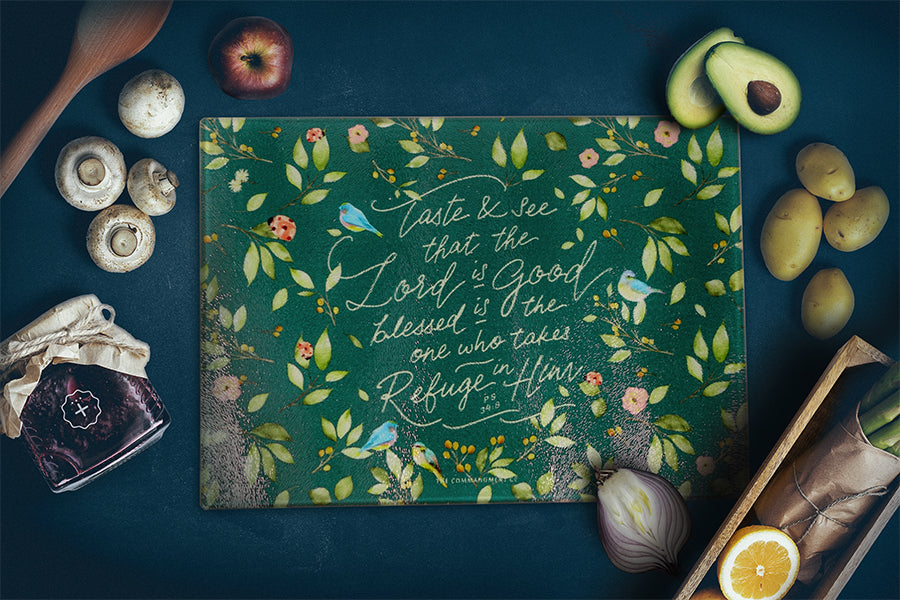 Taste & See
that the
Lord is Good
blessed is the
one who takes
Refuge in Him
PS
34:8
THE COMMANDMENT CO